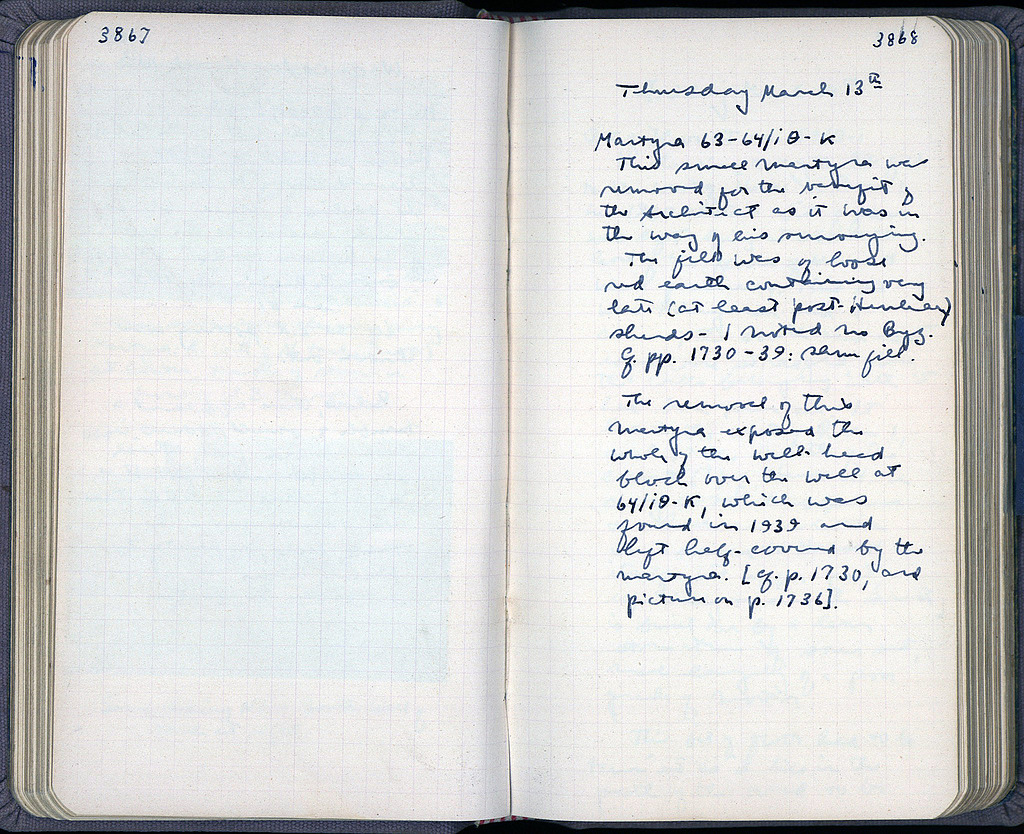 3867
3868
Thursday March 13th
Martyra 63-64/ΙΘ-Κ
This small martyra was
removed for the benefit of
the Architect as it was in
the way of his surveying.
The fill was of loose
red earth containing very
late (at least post-Herulian)
sherds - I noted no Byz.
Cf. pp. 1730-39: same fill.
The removal of this
martyra exposed the
whole of the well-head
block over the well at
64/ΙΘ-Κ, which was
found in 1939 and
left half-covered by the
martyra. [cf. p. 1730, and
picture on p. 1736].